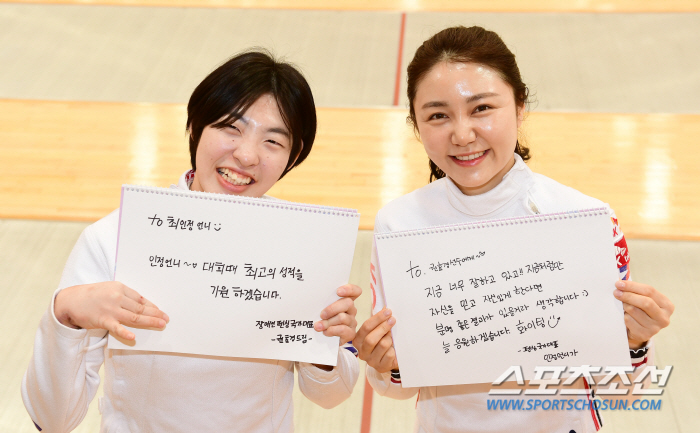 to 최인정 언니 ㅡ
인정언니 ~ 대회때 최고의 성적을
기원 하겠습니다.
장애인 펜싱 국가대표
- 권효경 드림 -
to. 권효경선수에게 ~
지금 너무 잘하고 있고!! 지금처럼만
자신을 믿고 자신있게 한다면
분명 좋은 결과가 있을거라 생각합니다 :)
늘 응원하겠습니다. 화이팅
- 펜싱국가대표
인정언니가
스포츠조선
WWW.SPORTSCHOSUN.COM